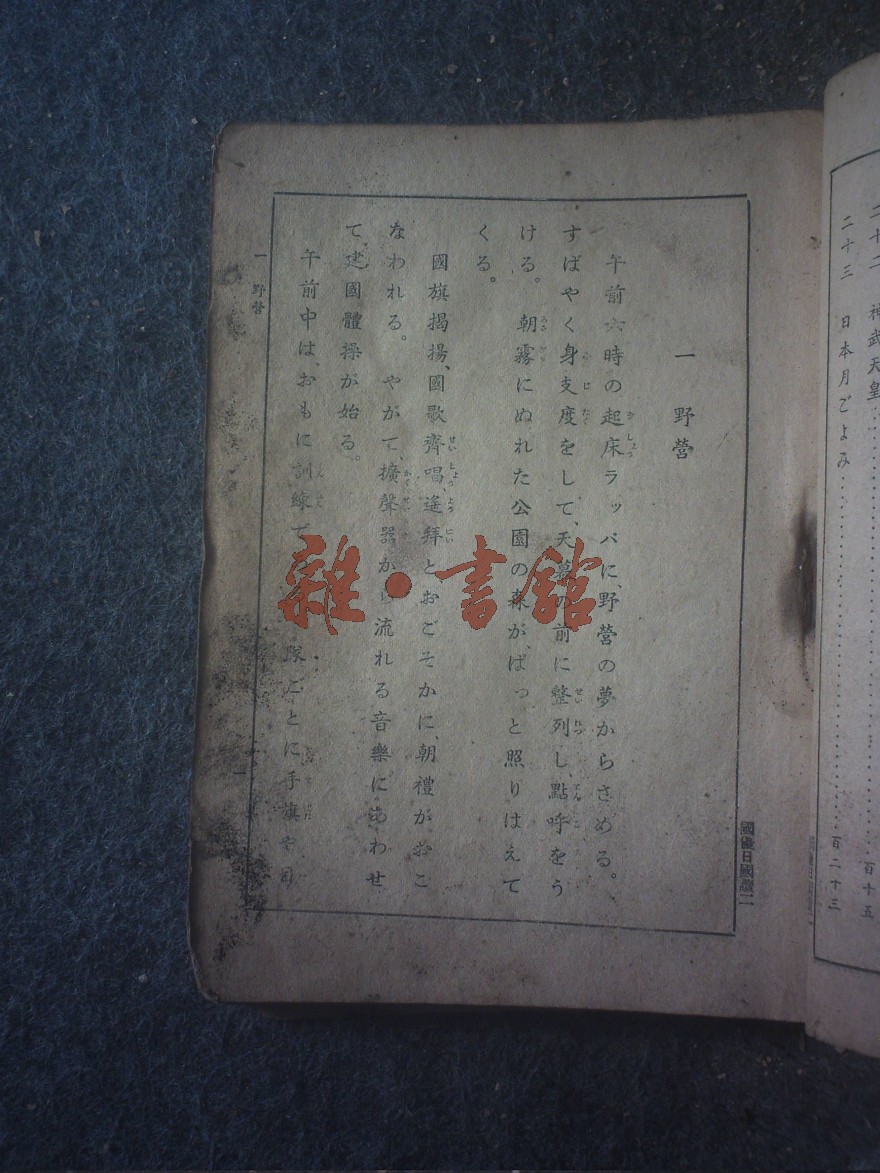 二十三 日本月ごよみ……百二十三
一 野營
午前六時の起床ラッパに、野營の夢からさめる。
すばやく身支度をして、天幕の前に整列し、點呼をう
ける。朝霧にぬれた公園の森が、ぱっと照りはえて
くる。
國旗揭揚、國歌齊唱、遙拜とおごそかに、朝禮がおこ
なわれる。やがて、擴聲器から流れる音樂にあわせ
て、建國體操が始る。
午前中は、おもに訓練で
隊ごとに手旗や
一 野營
一
雜·書館